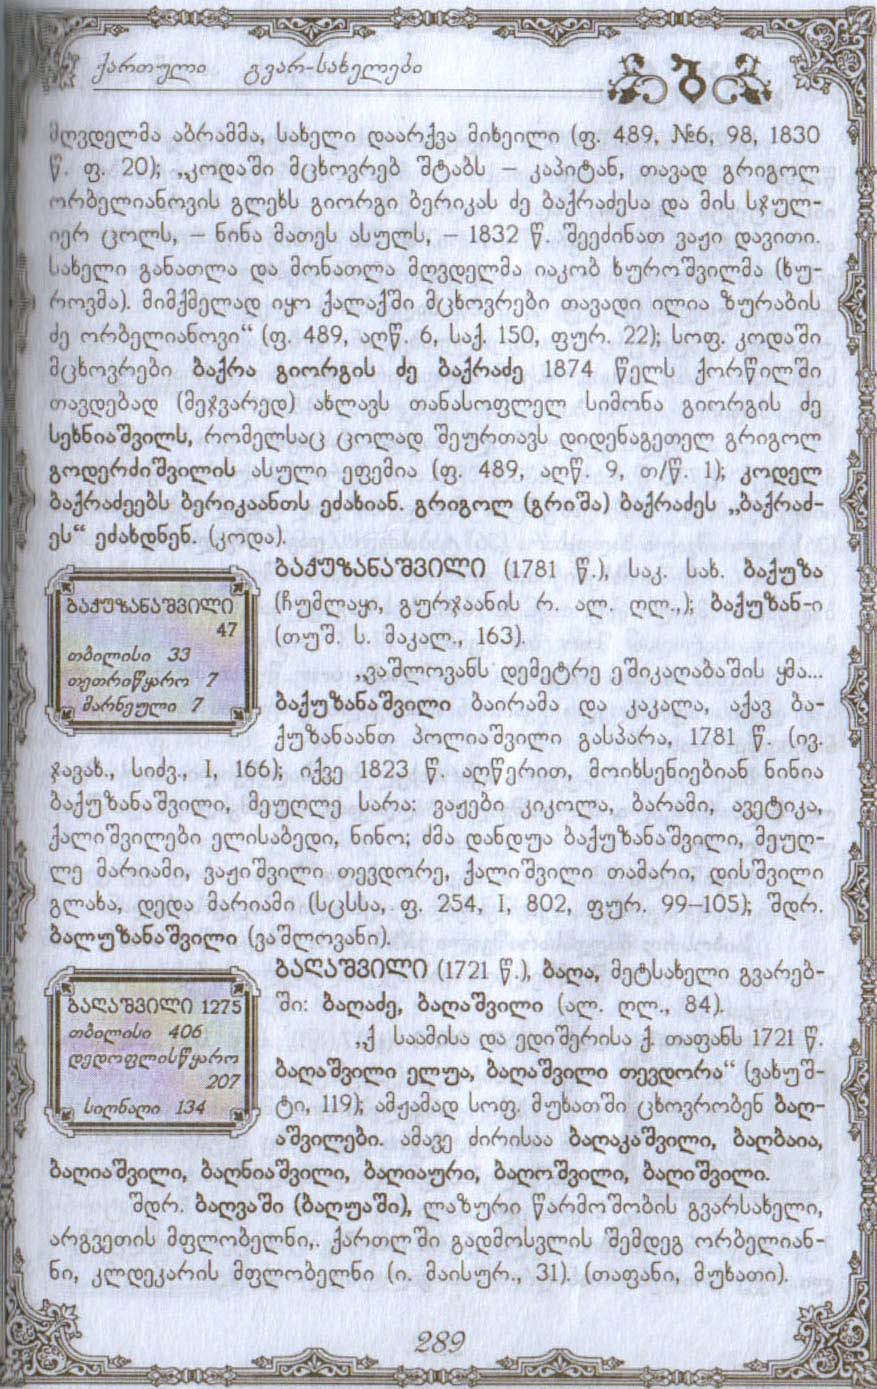 ქართული გვარ-სახელები
მღვდელმა აბრამმა, სახელი დაარქვა მიხეილი (ფ. 489, №6, 98, 1830
წ. ფ. 20); „კოდაში მცხოვრებ შტაბს – კაპიტან, თავად გრიგოლ
ორბელიანოვის გლეხს გიორგი ბერიკას ძე ბაქრაძესა და მის სჯულ-
იერ ცოლს, – ნინა მათეს ასულს, – 1832 წ. შეეძინათ ვაჟი დავითი.
სახელი განათლა და მონათლა მღვდელმა იაკობ ხუროშვილმა (ხუ-
როვმა). მიმქმელად იყო ქალაქში მცხოვრები თავადი ილია ზურაბის
ძე ორბელიანოვი“ (ფ. 489, აღწ. 6, საქ. 150, ფურ. 22); სოფ. კოდაში
მცხოვრები ბაქრა გიორგის ძე ბაქრაძე 1874 წელს ქორწილში
თავდებად (მეჯვარედ) ახლავს თანასოფლელ სიმონა გიორგის ძე
სეხნიაშვილს, რომელსაც ცოლად შეურთავს დიდენაგეთელ გრიგოლ
გოდერძიშვილის ასული ეფემია (ფ. 489, აღწ. 9, თ/წ. 1); კოდელ
ბაქრაძეებს ბერიკაანთს ეძახიან. გრიგოლ (გრიშა) ბაქრაძეს „ბაქრაძ-
ეს“ ეძახდნენ. (კოდა).
ბაქუზანაშვილი
47
თბილისი 33
თეთრიწყარო 7
მარნეული 7
ბაქუზანაშვილი (1781 წ.), საკ. სახ. ბაქუზა
(ჩუმლაყი, გურჯაანის რ. ალ. ღლ.,); ბაქუზან-ი
(თუშ. ს. მაკალ., 163).
„ვაშლოვანს დემეტრე ეშიკაღაბაშის ყმა...
ბაქუზანაშვილი ბაირამა და კაკალა, აქავ ბა-
ქუზანაანთ პოლიაშვილი გასპარა, 1781 წ. (ივ.
ჯავახ., სიძვ., I, 166); იქვე 1823 წ. აღწერით, მოიხსენიებიან ნინია
ბაქუზანაშვილი, მეუღლე სარა: ვაჟები კიკოლა, ბარამი, ავეტიკა,
ქალიშვილები ელისაბედი, ნინო; ძმა დანდუა ბაქუზანაშვილი, მეუღ-
ლე მარიამი, ვაჟიშვილი თევდორე, ქალიშვილი თამარი, დისშვილი
გლახა, დედა მარიამი (სცსსა, ფ. 254, I, 802, ფურ. 99–105); შდრ.
ბალუზანაშვილი (ვაშლოვანი).
ბაღაშვილი 1275
თბილისი 406
დედოფლისწყარო
207
სიღნაღი 134
ბაღაშვილი (1721 წ.), ბაღა, მეტსახელი გვარებ-
ში: ბაღაძე, ბაღაშვილი (ალ. ღლ., 84).
„ქ საამისა და ედიშერისა ქ. თაფანს 1721 წ.
ბაღაშვილი ელუა, ბაღაშვილი თევდორა“ (ვახუშ-
ტი, 119); ამჟამად სოფ. მუხათში ცხოვრობენ ბაღ-
აშვილები. ამავე ძირისაა ბაღაკაშვილი, ბაღბაია,
ბაღიაშვილი, ბაღნიაშვილი, ბაღიაური, ბაღოშვილი, ბაღიშვილი.
შდრ. ბაღვაში (ბაღუაში), ლაზური წარმოშობის გვარსახელი,
არგვეთის მფლობელნი,. ქართლში გადმოსვლის შემდეგ ორბელიან-
ნი, კლდეკარის მფლობელნი (ი. მაისურ., 31). (თაფანი, მუხათი).
289